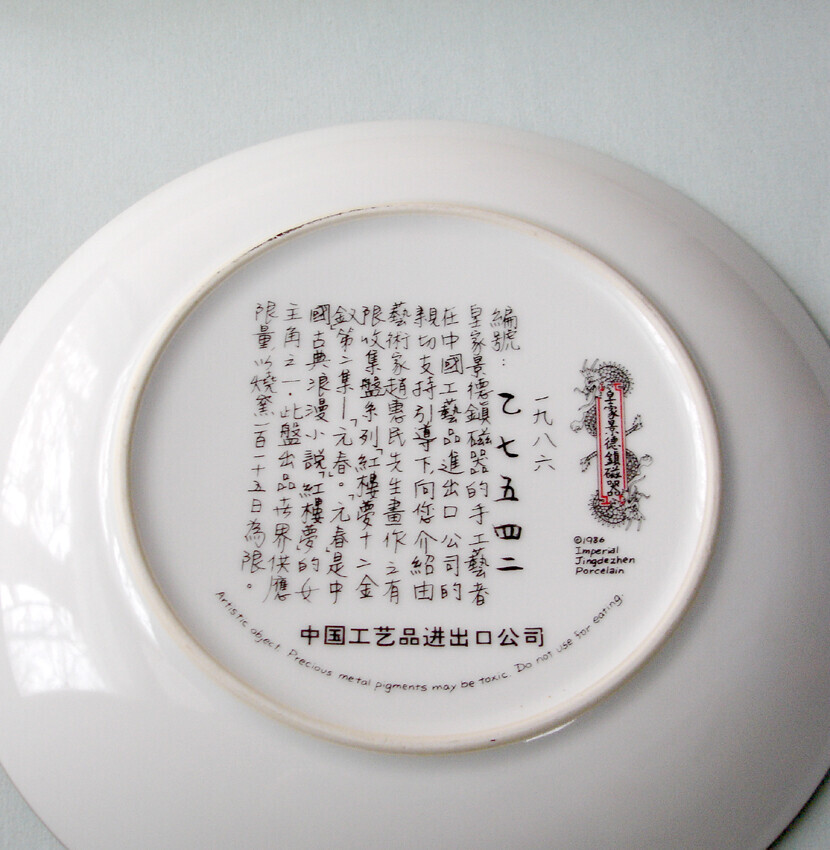 皇家景德鎮磁器
©1986
Imperial
Jingdezhen
Porcelain
一九八六
編號:乙七五四二
皇家景德鎮磁器的手工藝者
在中國工藝品進出口公司的
親切支持引導下,向您介紹由
藝術家趙惠民先生畫作之有
限收集盤系列「紅樓夢十二金
釵」第二集—「元春」。「元春」是中
國古典浪漫小說「紅樓夢」的女
主角之一.此盤出品世界供應
限量以燒窯一百一十五日為限。
中国工艺品进出口公司
Artistic object. Precious metal pigments may be toxic. Do not use for eating.